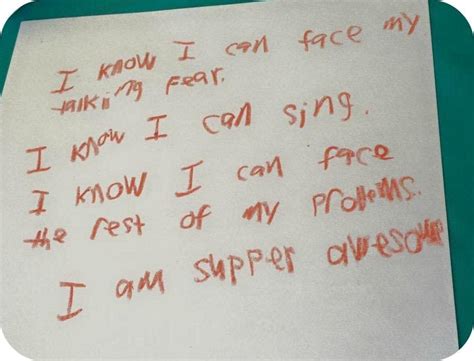 I know I can face my
talking fear.
I know I can sing.
I know I can face
the rest of my prolems.
I am supper awesome